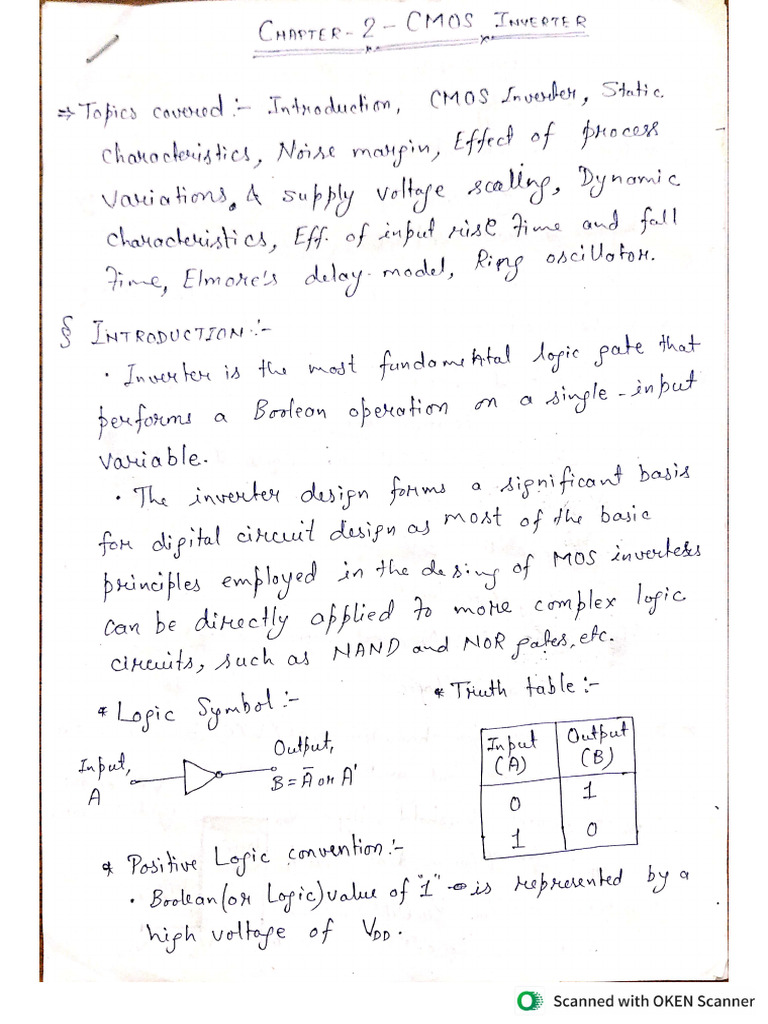 CHAPTER-2-CMOS INVERTER
⇒ Topics covered:- Introduction, CMOS Inverter, Static
characteristics, Noise margin, Effect of process
variations, & supply voltage scaling, Dynamic
characteristics, Eff. of input rise time and fall
time, Elmore's delay model, Ring oscillator.
§ INTRODUCTION:-
• Inverter is the most fundamental logic gate that
performs a Boolean operation on a single-input
variable.
• The inverter design forms a significant basis
for digital circuit design as most of the basic
principles employed in the desing of MOS inverters
can be directly applied to more complex logic
circuits, such as NAND and NOR gates, etc.
* Logic Symbol:-
Input,
A
Output,
B = Ā or A'
* Truth table:-
Input (A) Output (B)
0 1
1 0
* Positive Logic convention:-
• Boolean (or Logic) value of "1" is represented by a
high voltage of VDD.
Scanned with OKEN Scanner